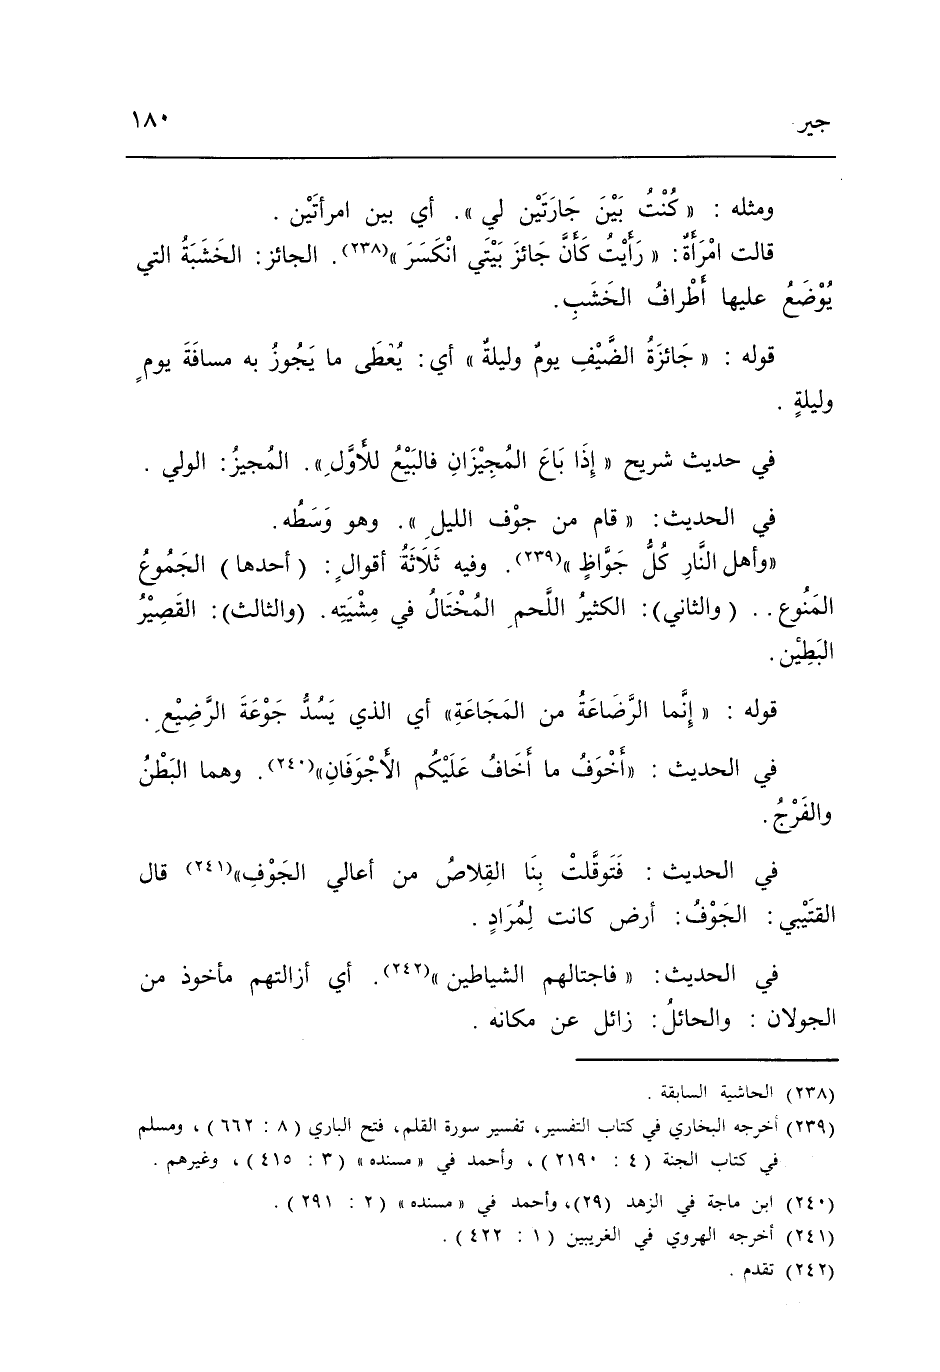 جير ١٨٠
ومثله : « كُنْتُ بَيْنَ جَارَتَيْن لي ». أي بين امرأتَيْن .
قالت امْرَأَةٌ: « رَأَيْتُ كَأَنَّ جَائزَ بَيْتَي انْكَسَرَ »(٢٣٨). الجائز: الخَشَبَةُ التي
يُوْضَعُ عليها أَطْرافُ الخَشَبِ.
قوله : « جَائزَةُ الضَّيْفِ يومٌ وليلةٌ » أي: يُعْطَى ما يَجُوزُ به مسافَةَ يومٍ
وليلةٍ .
في حديث شريح « إِذَا بَاعَ المُجِيْزَانِ فالبَيْعُ للأَوَّلِ». المُجيزُ: الولي .
في الحديث: « قام من جوْف الليلِ ». وهو وَسَطُه.
«وأهل النَّارِ كُلُّ جَوَّاظٍ »(٢٣٩). وفيه ثَلَاثَةُ أقوالٍ: ( أحدها ) الجَمُوعُ
المَنُوع. . ( والثاني): الكثيرُ اللَّحمِ المُخْتَالُ في مِشْيَتِه. (والثالث): القَصِيْرُ
البَطِيْن.
قوله : « إِنَّما الرَّضَاعَةُ من المَجَاعَةِ» أي الذي يَسُدُّ جَوْعَةَ الرَّضِيْعِ .
في الحديث : «أَخْوَفُ ما أَخَافُ عَلَيْكُم الأَجْوَفَانِ»(٢٤٠). وهما البَطْنُ
والفَرْجُ.
في الحديث : فَتَوقَّلتْ بِنَا القِلاصُ من أعالي الجَوْفِ»(٢٤١) قال
القتَيْبي: الجَوْفُ: أرض كانت لِمُرَادٍ .
في الحديث: « فاجتالهم الشياطين »(٢٤٢). أي أزالتهم مأخوذ من
الجولان : والحائلُ: زائل عن مكانه .
(٢٣٨) الحاشية السابقة .
(٢٣٩) أخرجه البخاري في كتاب التفسير، تفسير سورة القلم، فتح الباري ( ٨ : ٦٦٢ ) ، ومسلم
في كتاب الجنة ( ٤ : ٢١٩٠ ) ، وأحمد في « مسنده » ( ٣ : ٤١٥ ) ، وغيرهم .
(٢٤٠) ابن ماجة في الزهد (٢٩)، وأحمد في « مسنده » ( ٢ : ٢٩١ ) .
(٢٤١) أخرجه الهروي في الغريبين ( ١ : ٤٢٢ ) .
(٢٤٢) تقدم .